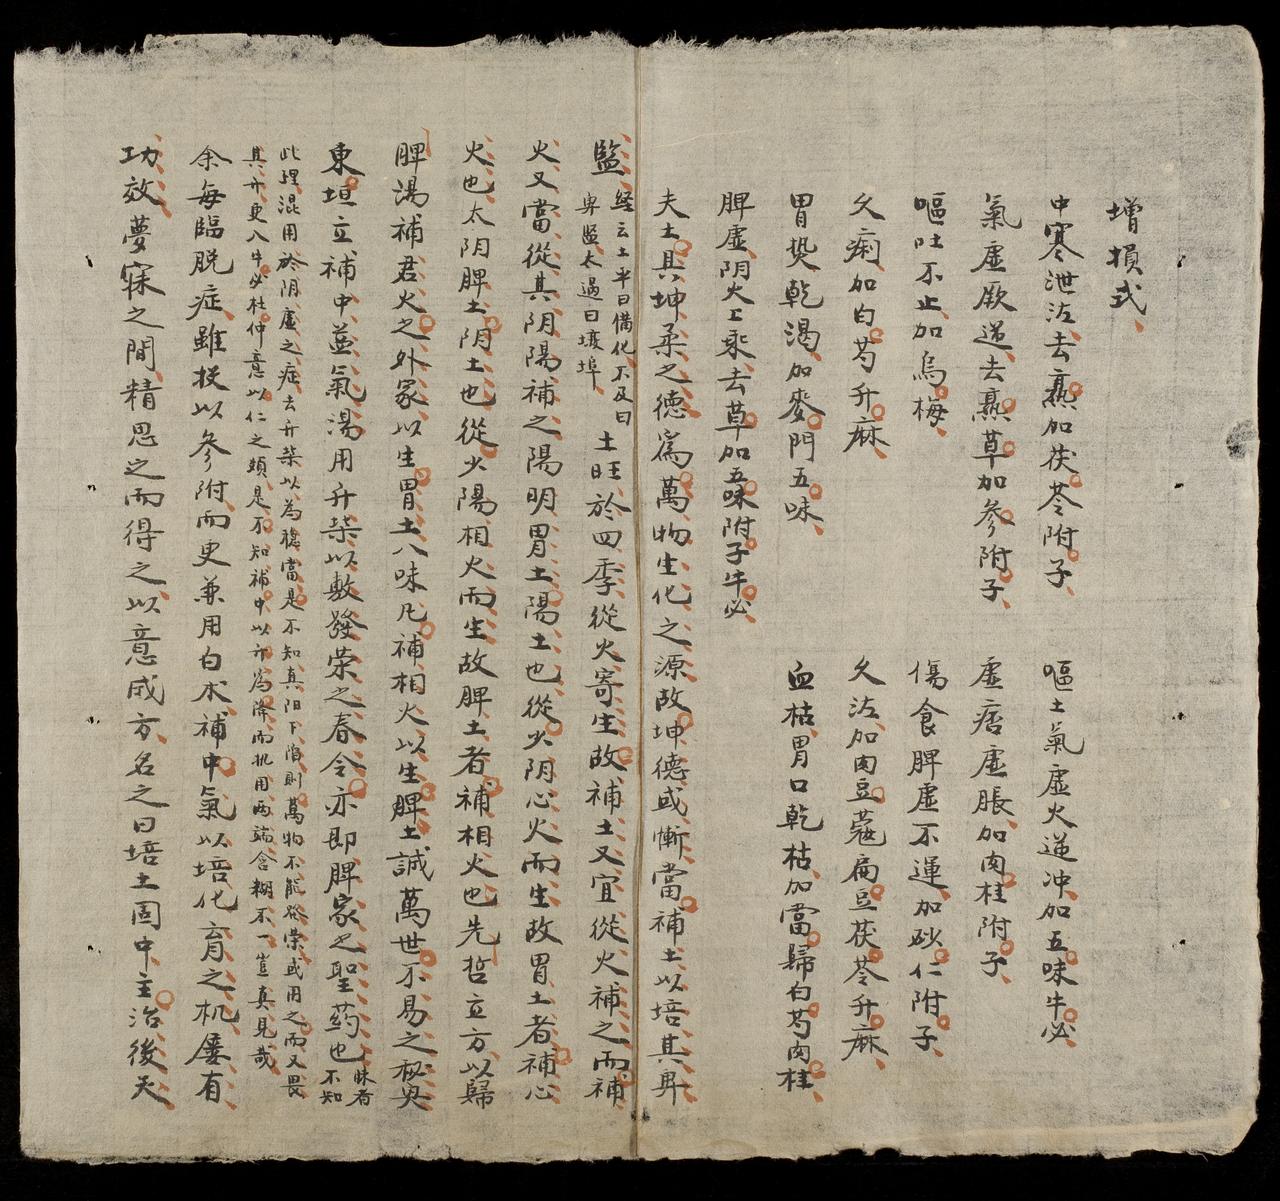 增損式
中寒泄泻去熟加茯苓附子　嘔土氣虛火逆冲加五味牛必
氣虛厥逆去熟草加參附子　虛痞虛脹加肉桂附子
嘔吐不止加烏梅　傷食脾虛不運加砂仁附子
久痢加白芍升麻　久泻加肉豆蔻扁豆茯苓升麻
胃熱乾渴加麥門五味　血枯胃口乾枯加當歸白芍肉桂
脾虛阴火上乘去草加五味附子牛必
夫土具坤柔之德爲萬物生化之源故坤德或慚當補土以培其卑
監經云土平曰備化不及曰卑監太過曰墩埠土旺於四季從火寄生故補土又宜從火補之而補
火又當從其阴陽補之陽明胃土陽土也從少阴心火而生故胃土者補心
火也太阴脾土阴土也從少陽相火而生故脾土者補相火也先哲立方以歸
脾湯補君火之外家以生胃土八味凡補相火以生脾土誠萬世不易之秘奥
東垣立補中益氣湯用升柴以敷發荣之春令亦即脾家之聖药也昧者不知
此理混用於阴虛之症去升柴以為穩當是不知真阳下陷則萬物不能發荣或用之而又畏
其升更入牛必杜仲意以仁之類是不知補中以升為降而執用两端含糊不一豈真見哉
余每臨脱症雖投以參附而更兼用白朮補中氣以培化育之机屢有
功效夢寐之間精思之而得之以意成方名之曰培土固中主治後天